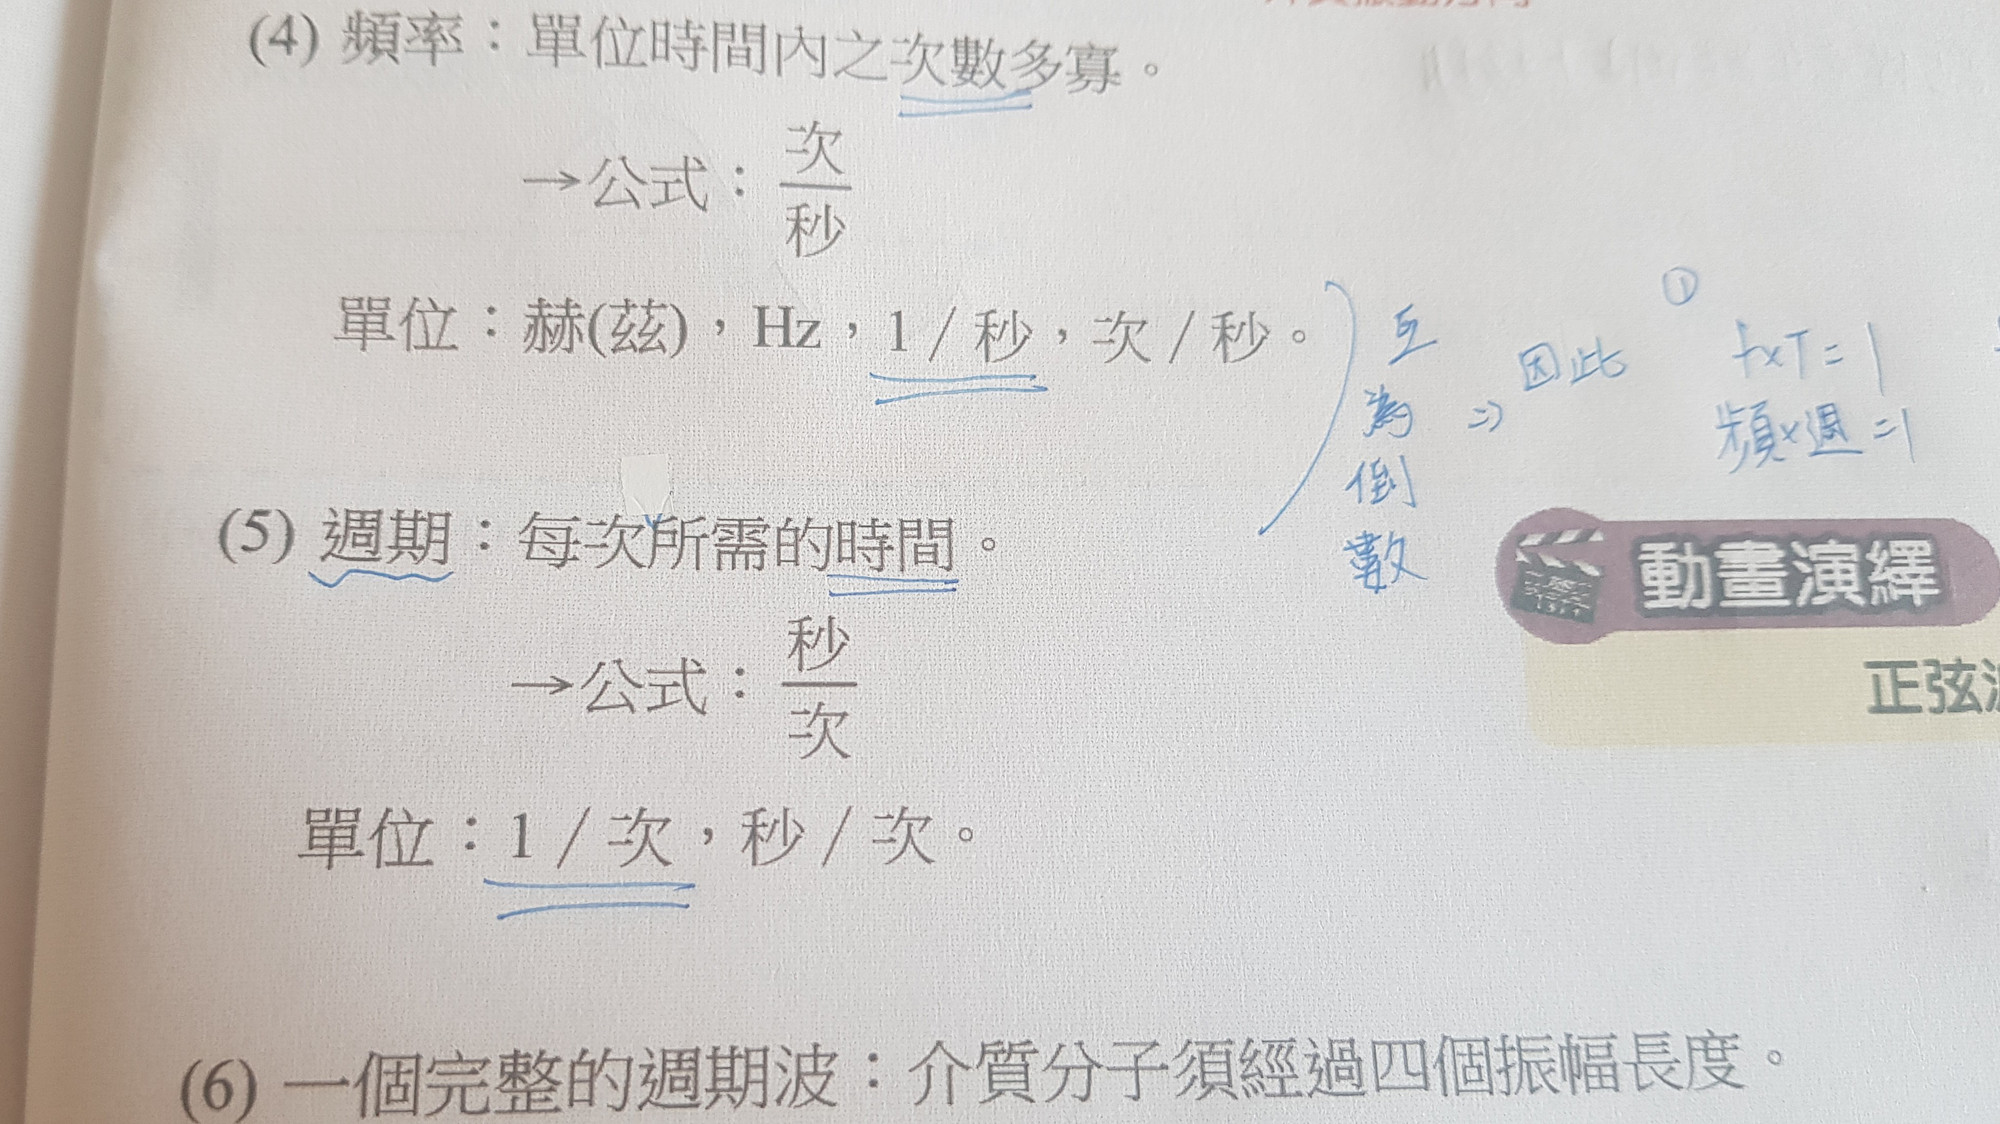 (4) 頻率：單位時間內之次數多寡。
→公式：次
秒
單位：赫(茲)，Hz，1／秒，次／秒。
互為倒數
⇒
因此
①
f×T=1
頻×週=1
(5) 週期：每次所需的時間。
→公式：秒
次
單位：1／次，秒／次。
動畫演繹
正弦
(6) 一個完整的週期波：介質分子須經過四個振幅長度。